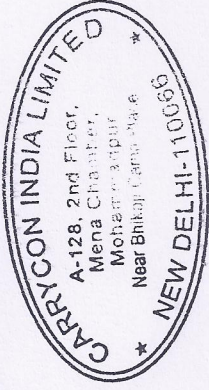 CARRYCON INDIA LIMITED
A-128, 2nd Floor,
Mena Chamber,
Mohammadpur
Near Bhikaji Cama Place
NEW DELHI-110066